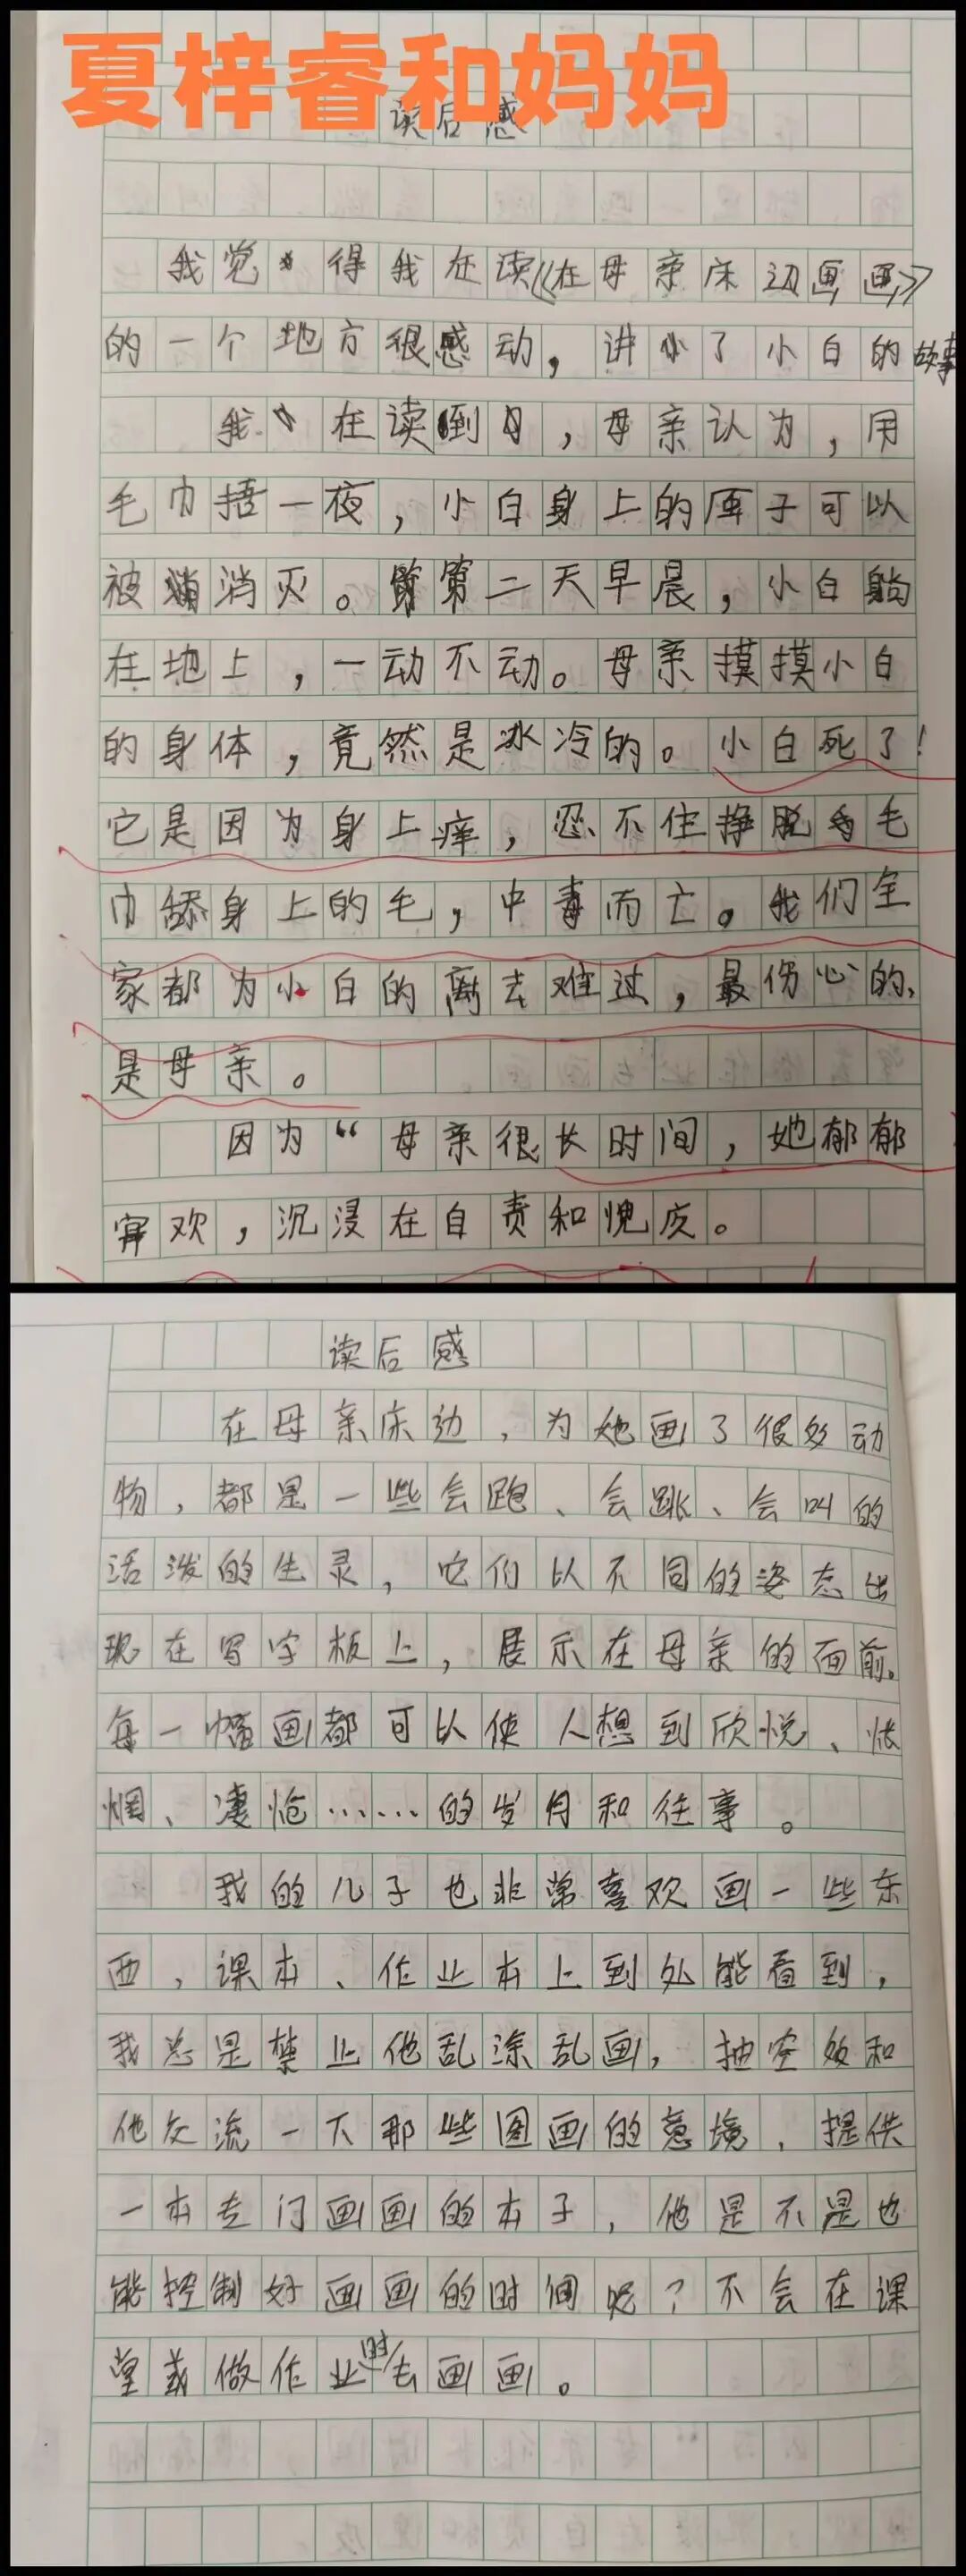 夏梓睿和妈妈
读后感
我觉得我在读《在母亲床边画画》
的一个地方很感动，讲了小白的故事
我在读到，母亲认为，用
毛巾捂一夜，小白身上的子可以
被消灭。第二天早晨，小白躺
在地上，一动不动。母亲摸摸小白
的身体，竟然是冰冷的。小白死了！
它是因为身上痒，忍不住挣脱毛
巾舔身上的毛，中毒而亡。我们全
家都为小白的离去难过，最伤心的，
是母亲。
因为“母亲很长时间，她郁郁
欢，沉浸在自责和愧疚。
读后感
在母亲床边，为她画了很多动
物，都是一些会跑、会跳、会叫的
活泼的生灵，它们以不同的姿态出
现在写字板上，展示在母亲的面前。
每一幅画都可以使人想到欣悦、怅
惘、凄怆……的岁月和往事。
我的儿子也非常喜欢画一些东
西，课本、作业本上到处能看到，
我总是禁止他乱涂乱画，抽空和
他交流一下那些图画的意境，提供
一本专门画画的本子，他是不是也
能控制好画画的时间呢？不会在课
堂或做作业时去画画。